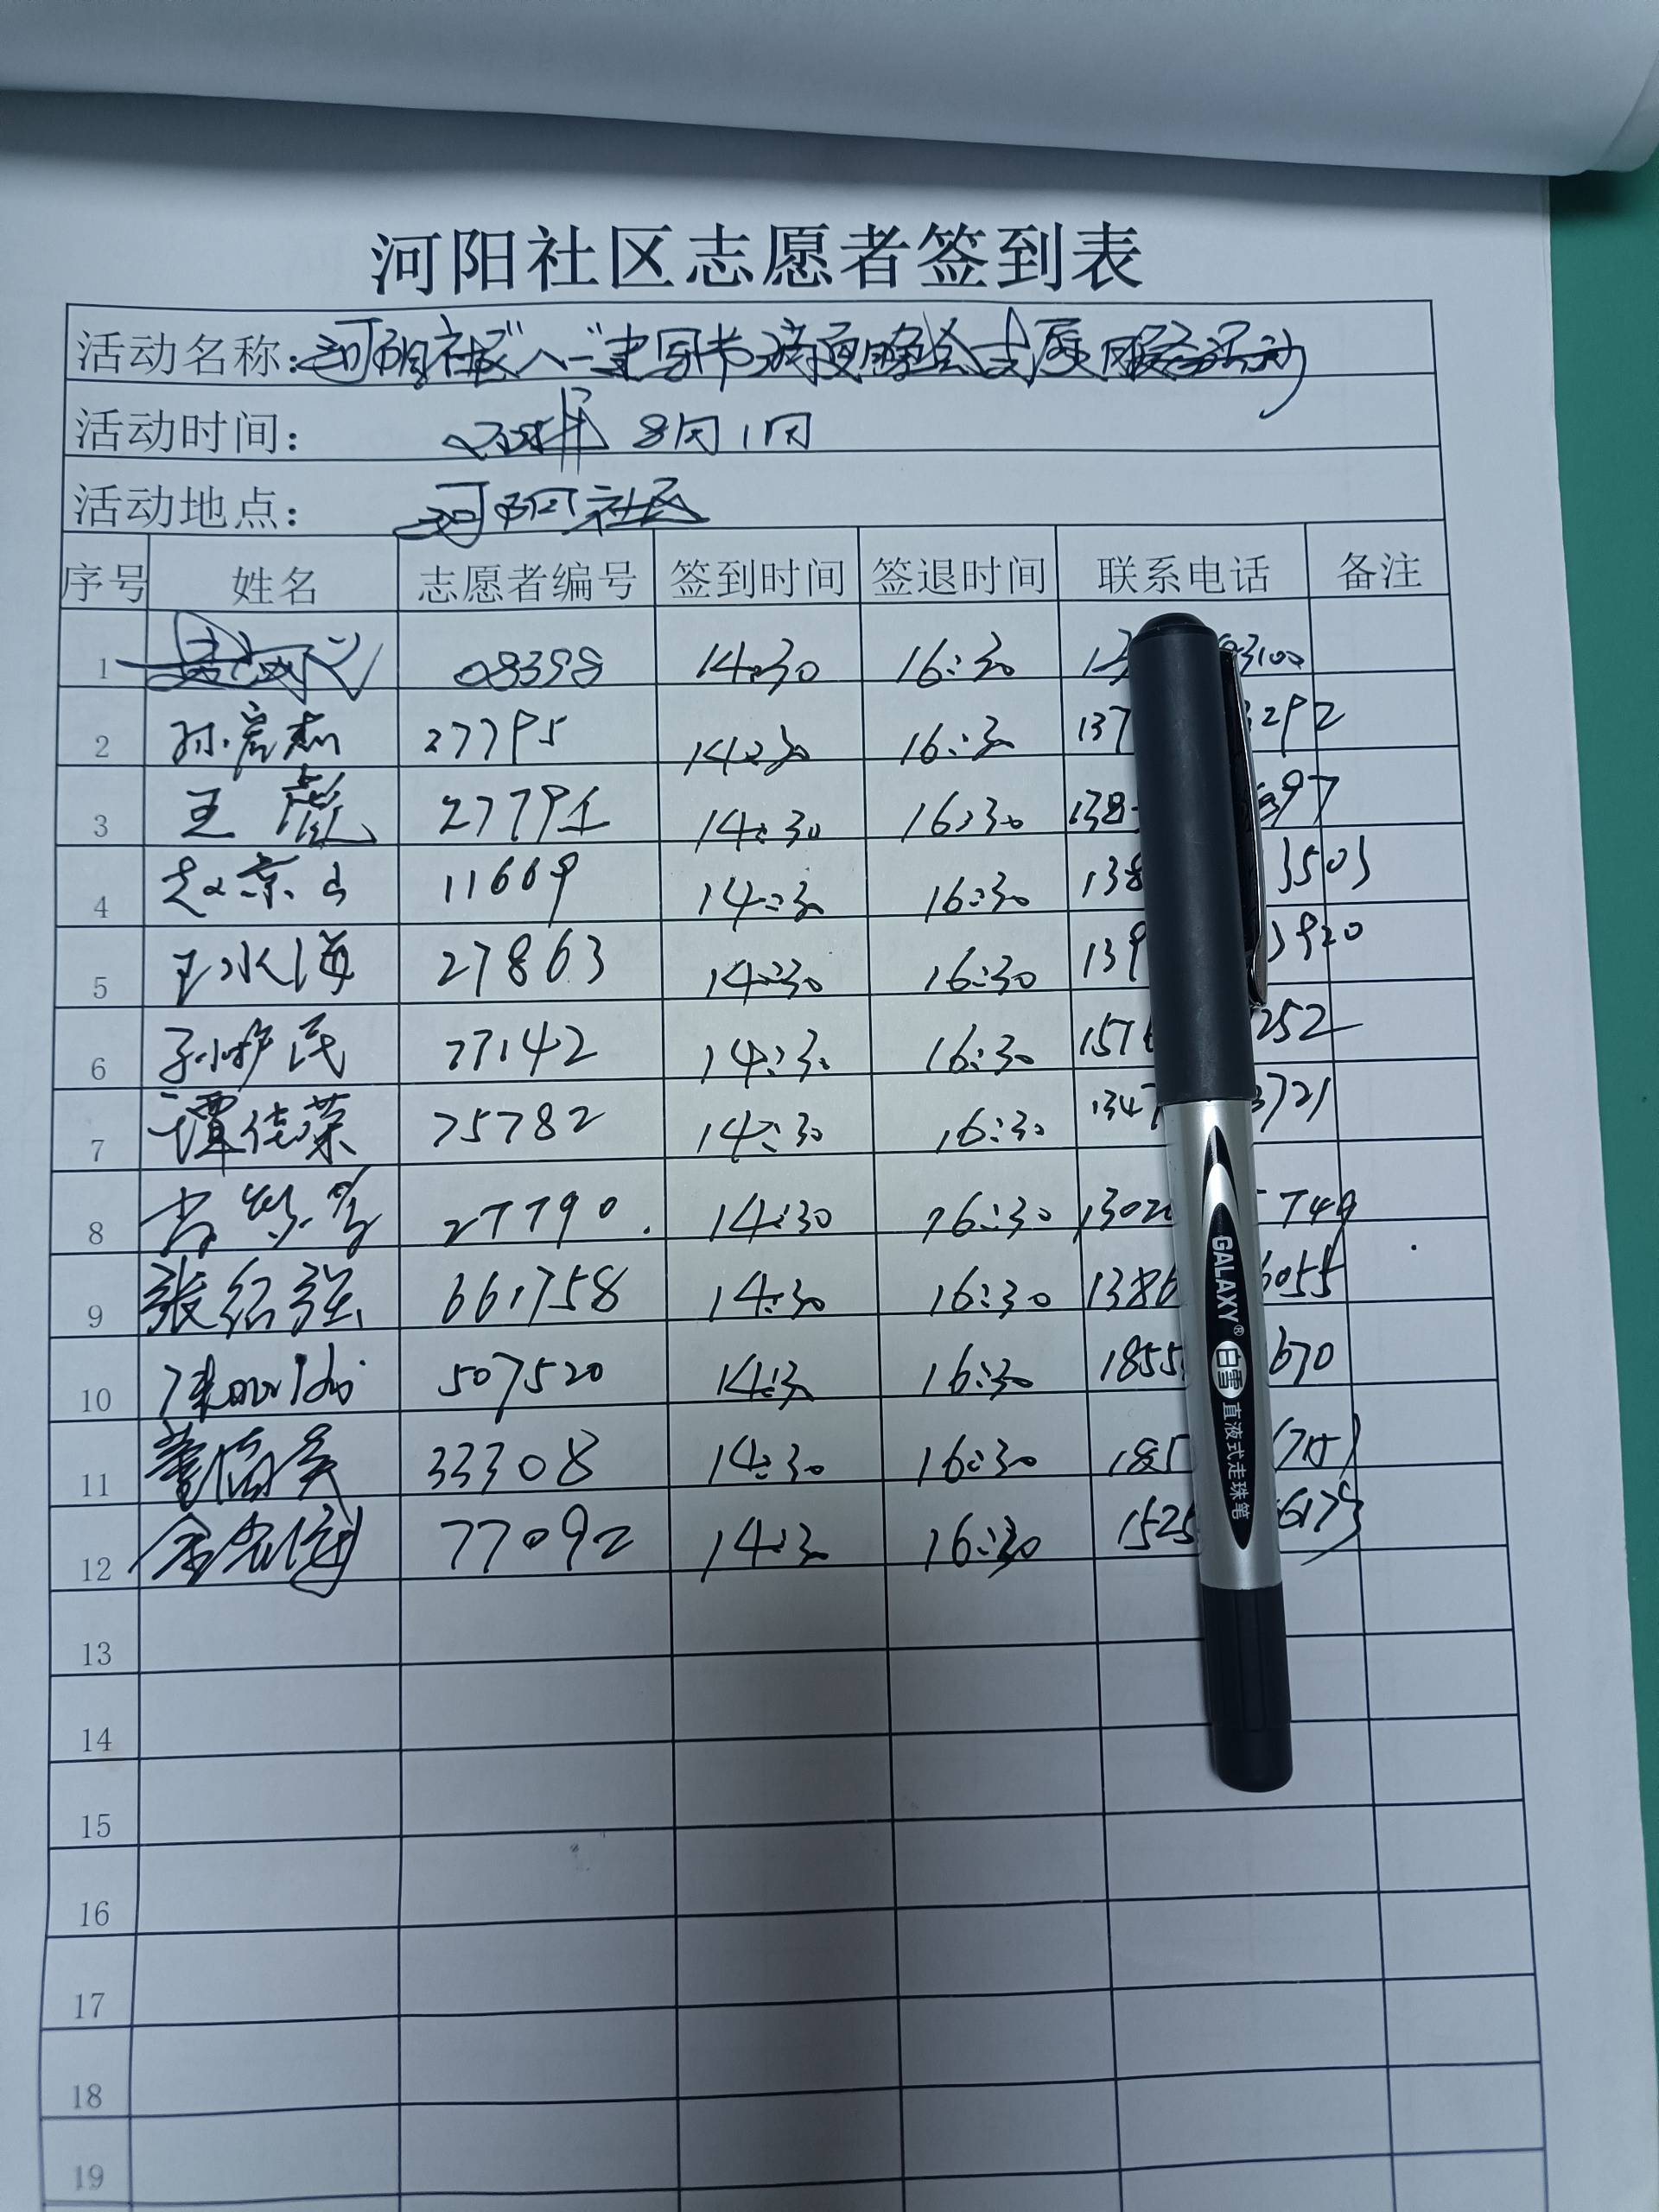 河阳社区志愿者签到表
活动名称：河阳社区"八一"建军节 晚会志愿服务活动
活动时间： 8月1日
活动地点： 河阳社区
序号 姓名 志愿者编号 签到时间 签退时间 联系电话 备注
1 08398 14:30 16:30 3100
2 27795 14:30 16:30 137 292
3 王彪 14:30 16:30 138 97
4 11669 14:30 16:30 138 3503
5 王水海 27863 14:30 16:30 139 3920
6 77142 14:30 16:30 157 252
7 谭佳荣 75782 14:30 16:30 134 3721
8 27790 14:30 16:30 1302 749
9 张红强 661758 14:30 16:30 1386 6055
10 507520 14:30 16:30 1855 670
11 33308 14:30 16:30 185
12 77092 14:30 16:30 1525 6175
13
14
15
16
17
18
19
GALAXY® 白雪 直液式走珠笔